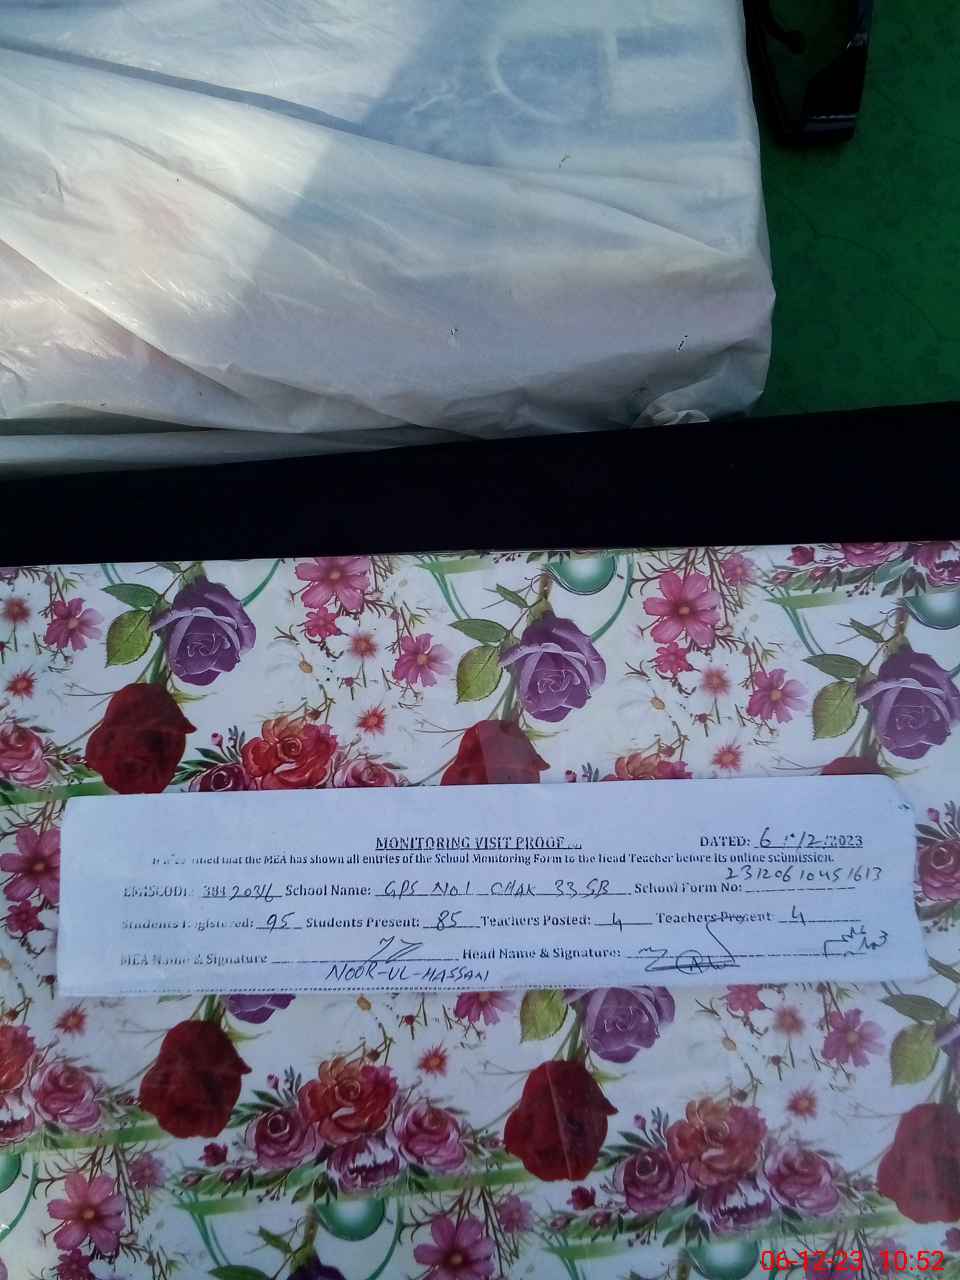 MONITORING VISIT PROOF DATED: 6/12/2023
that the MEA has shown all entries of the School Monitoring Form to the Head Teacher before its online submission.
EMISCODE: School Name: GPS No 1 CHAK 33 SB School Form No: 23120610451613
Students Registered: 95 Students Present: 85 Teachers Posted: 4 Teachers Present 4
MEA Name & Signature Head Name & Signature:
NOOR-UL-HASSAN
06-12-23 10:52